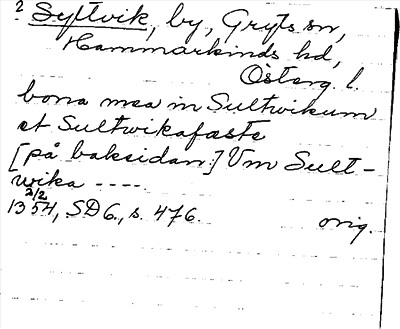 ? Syltvik, by, Gryts sn,
Hammarkinds hd,
Österg. l.
bona mea in Sultwikum
et Sultwikafæste
[på baksidan:] Vm Sult-
wika ----.
1354 2/2, SD6., s. 476. orig.